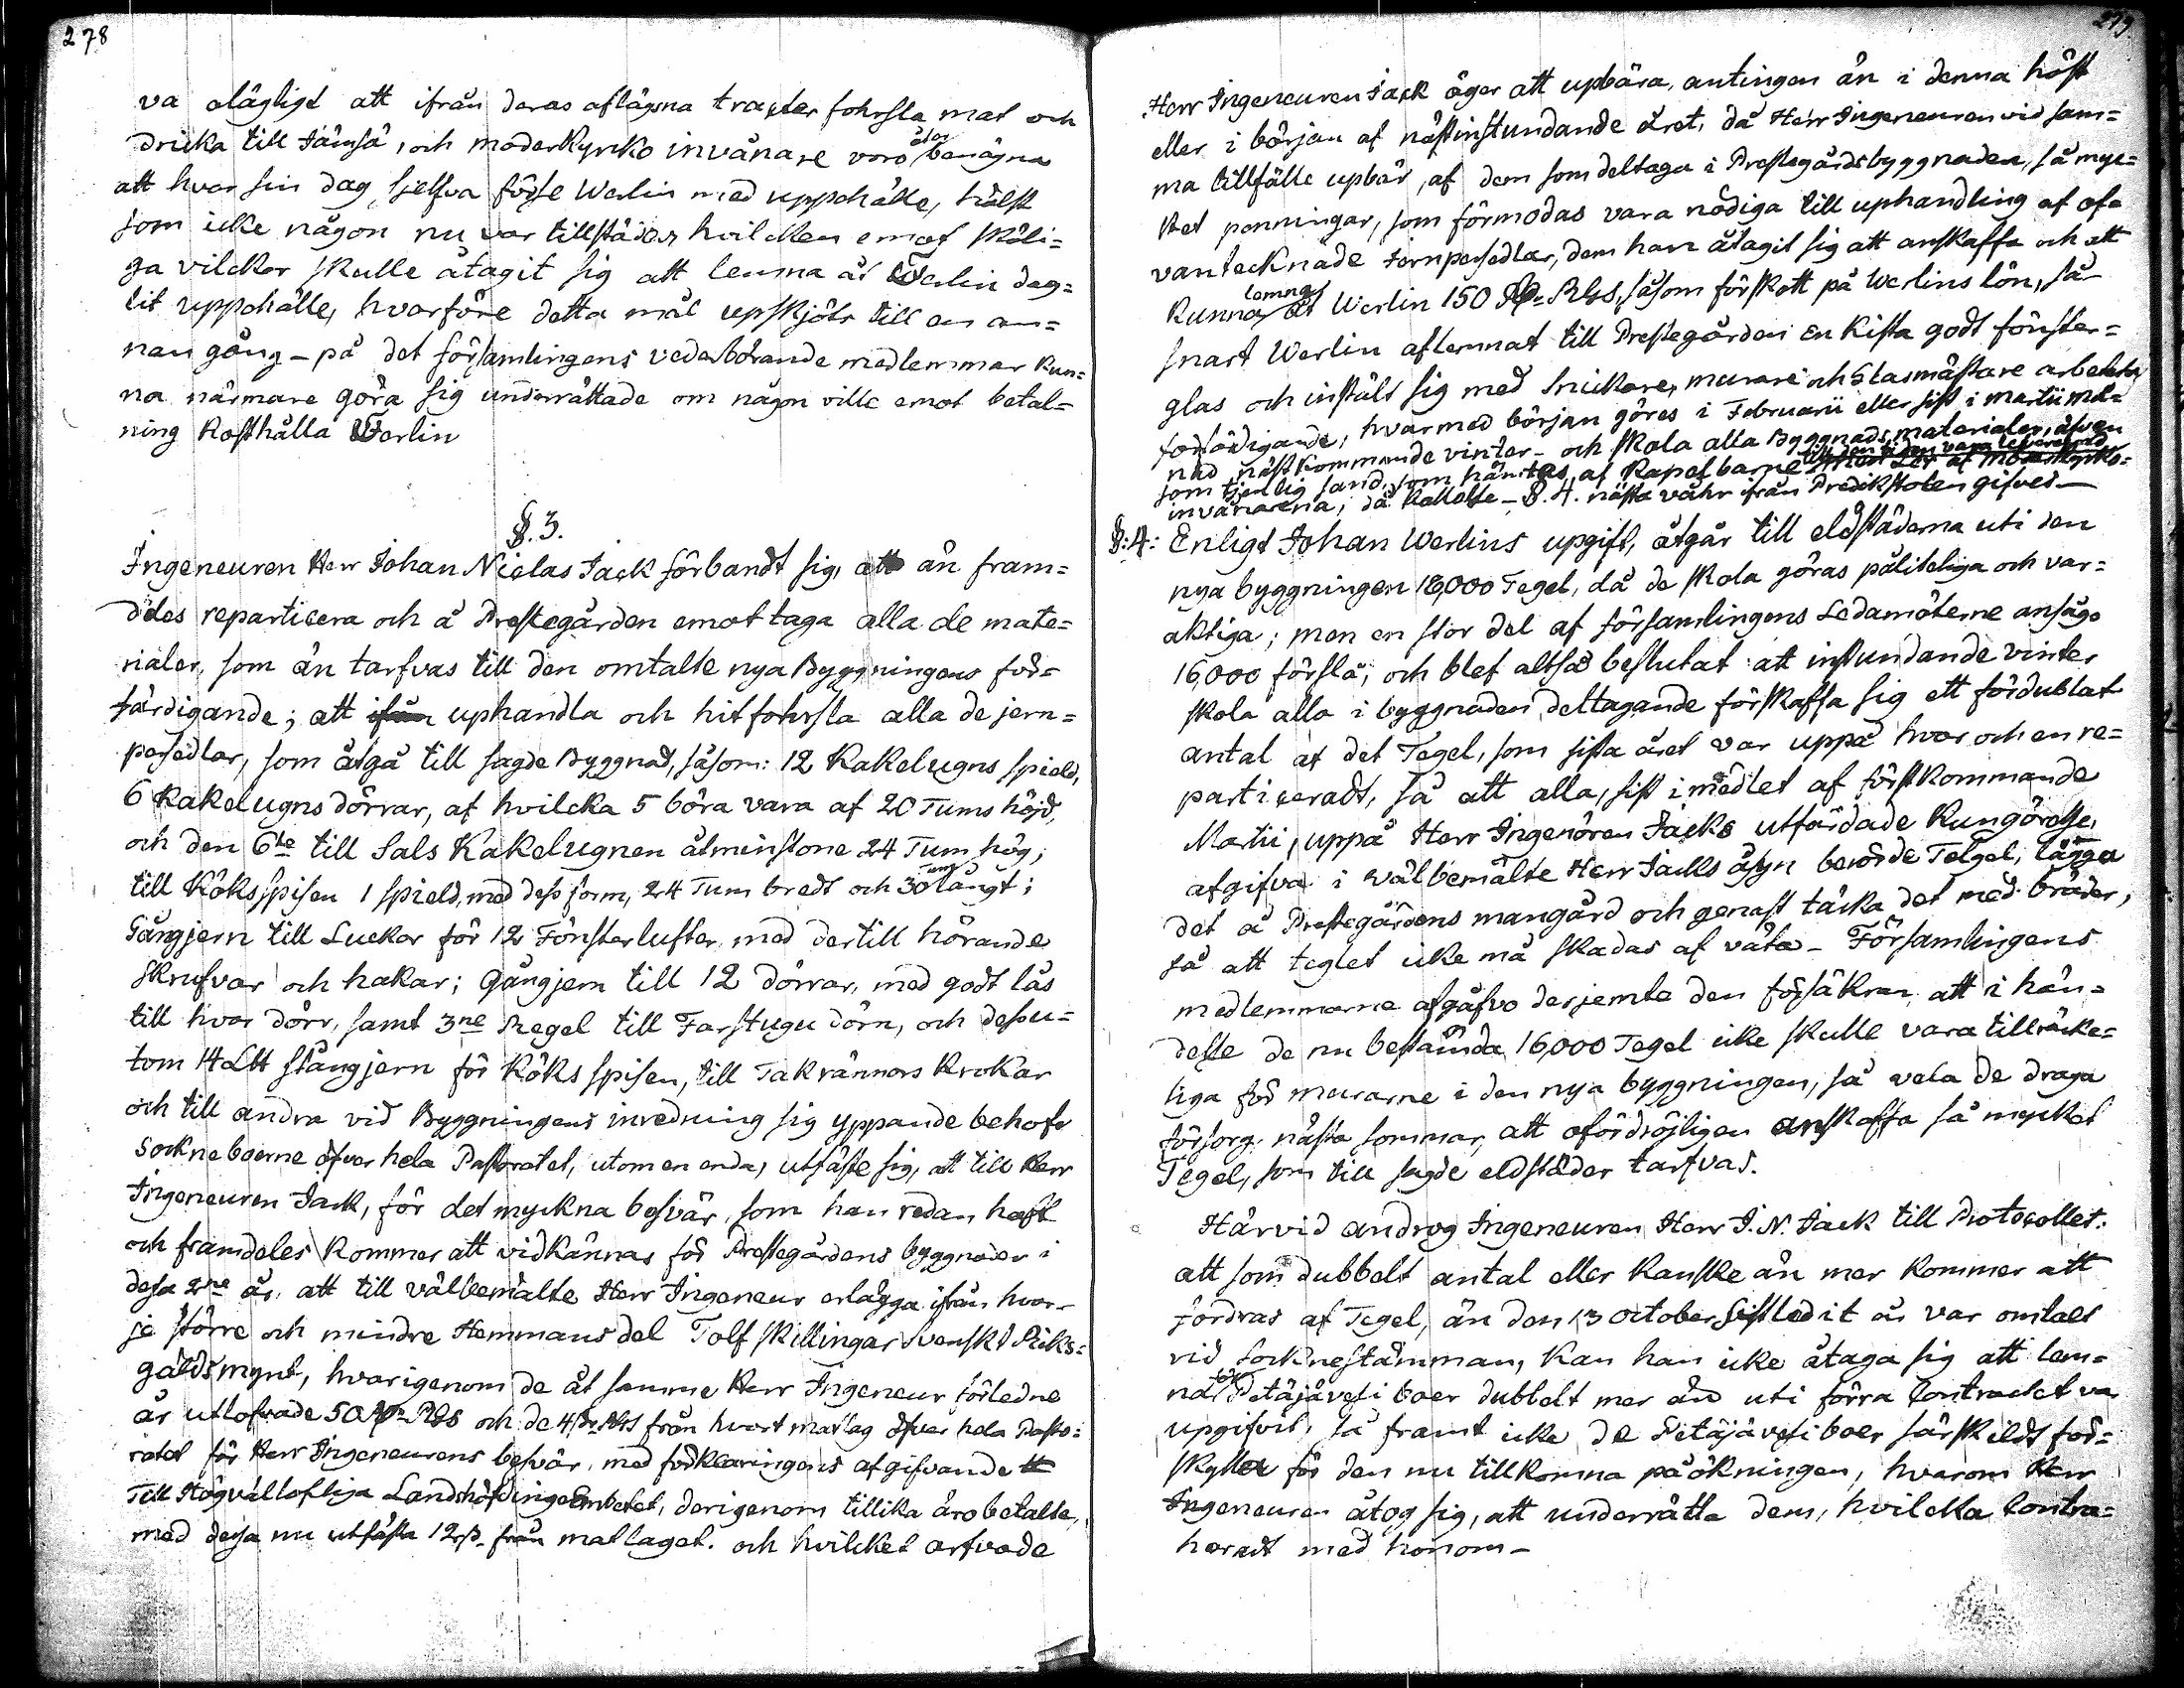 278
va olägligt att ifrån deras aflägsna tracter fohrsla mat och
dricka till Jämsä, och moderkyrko invånare voro benägna
att hvar sin dag sjelfva förse Werlin med uppehälle, hälst
som icke någon nu var tillstädes hvilcken emot skäli=
ga vilckor skulle åtagit sig att lemna åt Werlin dag=
lit uppehälle, hvarföre detta mål upskjöts till en an=
nan gång - på det församlingens vederbörande medlemmar kun=
na närmare göra sig underrättade om någon ville emot betal=
ning kosthålla Werlin
§. 3.
Ingeneuren Herr Johan Niclas Jack förbandt sig, att än fram=
deles reparticera och å Prestegården emottaga alla de mate=
rialer, som än tarfvas till den omtalte nya Byggningens för=
färdigande; att uphandla och hitfohrsla alla de jern=
persedlar, som åtgå till sagde Byggnad, såsom: 12 Kakelugns spield,
6 Kakelugns dörrar, af hvilcka 5 böra vara af 20 Tums höjd,
och den 6te till Sals Kakelugnen åtminstone 24 Tum hög;
till Köksspisen 1 spield, med dess form, 24 Tum bredt och 30 långt;
Gångjern till Luckor för 12 Fönsterlufter med dertill hörande
Skrufvar och hakar; Gångjern till 12 dörrar, med godt lås
till hvar dörr, samt 3ne Regel till Farstugu dörn, och dessu=
tom 14 L℔ stångjern för Köks spisen, till Takrännors Krokar
och till andra vid Byggningens inredning sig yppande behof.
Sockneboerne öfver hela Pastoratet, utom en enda, utfäste sig, att till Herr
Ingeneuren Jack, för det myckna besvär, som han redan haft
och framdeles kommer att vidkännas för Prestegårdens byggnader i
desa 2ne år, att till välbemälte Herr Ingeneur erlägga ifrån hvar=
je större och mindre Hemmans del Tolf skillingar Svenskt Riks=
gälds mynt, hvarigenom de åt samme Herr Ingeneur förledne
år utlofvade 50 Rd Rgs och de 4 Rgs från hvart matlag öfver hela Pasto=
ratet för Herr Ingeneurens besvär, med förklaringens afgifvande
Till Högvällofliga LandshöfdingeEmbetet, derigenom tillika äro betalte,
med desa nu utfästa 12 s. från matlaget. och hvilcket arfvode
279.
Herr Ingeneuren Jack äger att upbära, antingen än i denna höst
eller i början af nästinstundande året, då Herr Ingeneuren vid sam=
ma tillfälle upbär, af dem som deltaga i Prestegårdsbyggnaden, så myc=
ket penningar, som förmodas vara nödiga till uphandling af ofa
vantecknade Jernpersedlar, dem han åtagit sig att anskaffa och att
kunna lemna åt Werlin 150 Rd Rgs, såsom förskott på Werlins lön, så
snart Werlin aflemnat till Prestegården En Kista godt fönster=
glas och instält sig med Snickare, murare och Glasmästare arbetets
förfärdigande, hvarmed början göres i Februarii eller sist i martii må=
nad nästkommande vinter - och skola alla Byggnads materialer, äfven
till den tiden vara levererad
som tjenlig sand, som hämtas af Kapelbarne
invånarena, då Kallelse - §. 4. nästa våhr ifrån Predikstolen gifves -
§: 4: Enligt Johan Werlins upgift, åtgår till eldstäderna uti den
nya byggningen 18,000 Tegel, då de skola göras pålitliga och var=
aktiga; men en stor del af församlingens Ledamöterne ansågo
16,000 förslå; och blef altså beslutat att instundande vinter
skola alla i byggnaden deltagande förskaffa sig ett fördublat
antal af det Tegel, som sista året var uppå hvar och en re=
particeradt, så att alla, sist i medlet af förstkommande
Martii, uppå Herr Ingenören Jacks utfärdade Kungörelse,
afgifva i välbemälte Herr Jacks åsyn berörde Telgel, lägga
det å Prestegårdens mangård och genast täcka det med bräder,
så att teglet icke må skadas af väta - Församlingens
medlemmarne afgåfvo derjemte den försäkran att i hän=
delse de nu bestämda 16,000 Tegel icke skulle vara tillräcke=
liga för murarne i den nya byggningen, så vela de draga
försorg, nästa sommar, att ofördröjligen anskaffa så mycket
Tegel, som till sagde eldstäder tarfvas.
Härvid androg Ingeneuren Herr J. N. Jack till Protocollet:
att som dubbelt antal eller kanske än mer kommer att
fördras af Tegel, än den 13 October sistledit år var omtalt
vid Socknestämman, kan han icke åtaga sig att lem=
na för Petäjävesi boer dubbelt mer än uti förra Contractet var
upgifvit, så framt icke de Petäjävesi boer särskildt för=
skyller för den nu tillkomna påökningen, hvarom Herr
Ingeneuren åtog sig, att underrätta dem, hvilcka Contra=
heradt med honom -